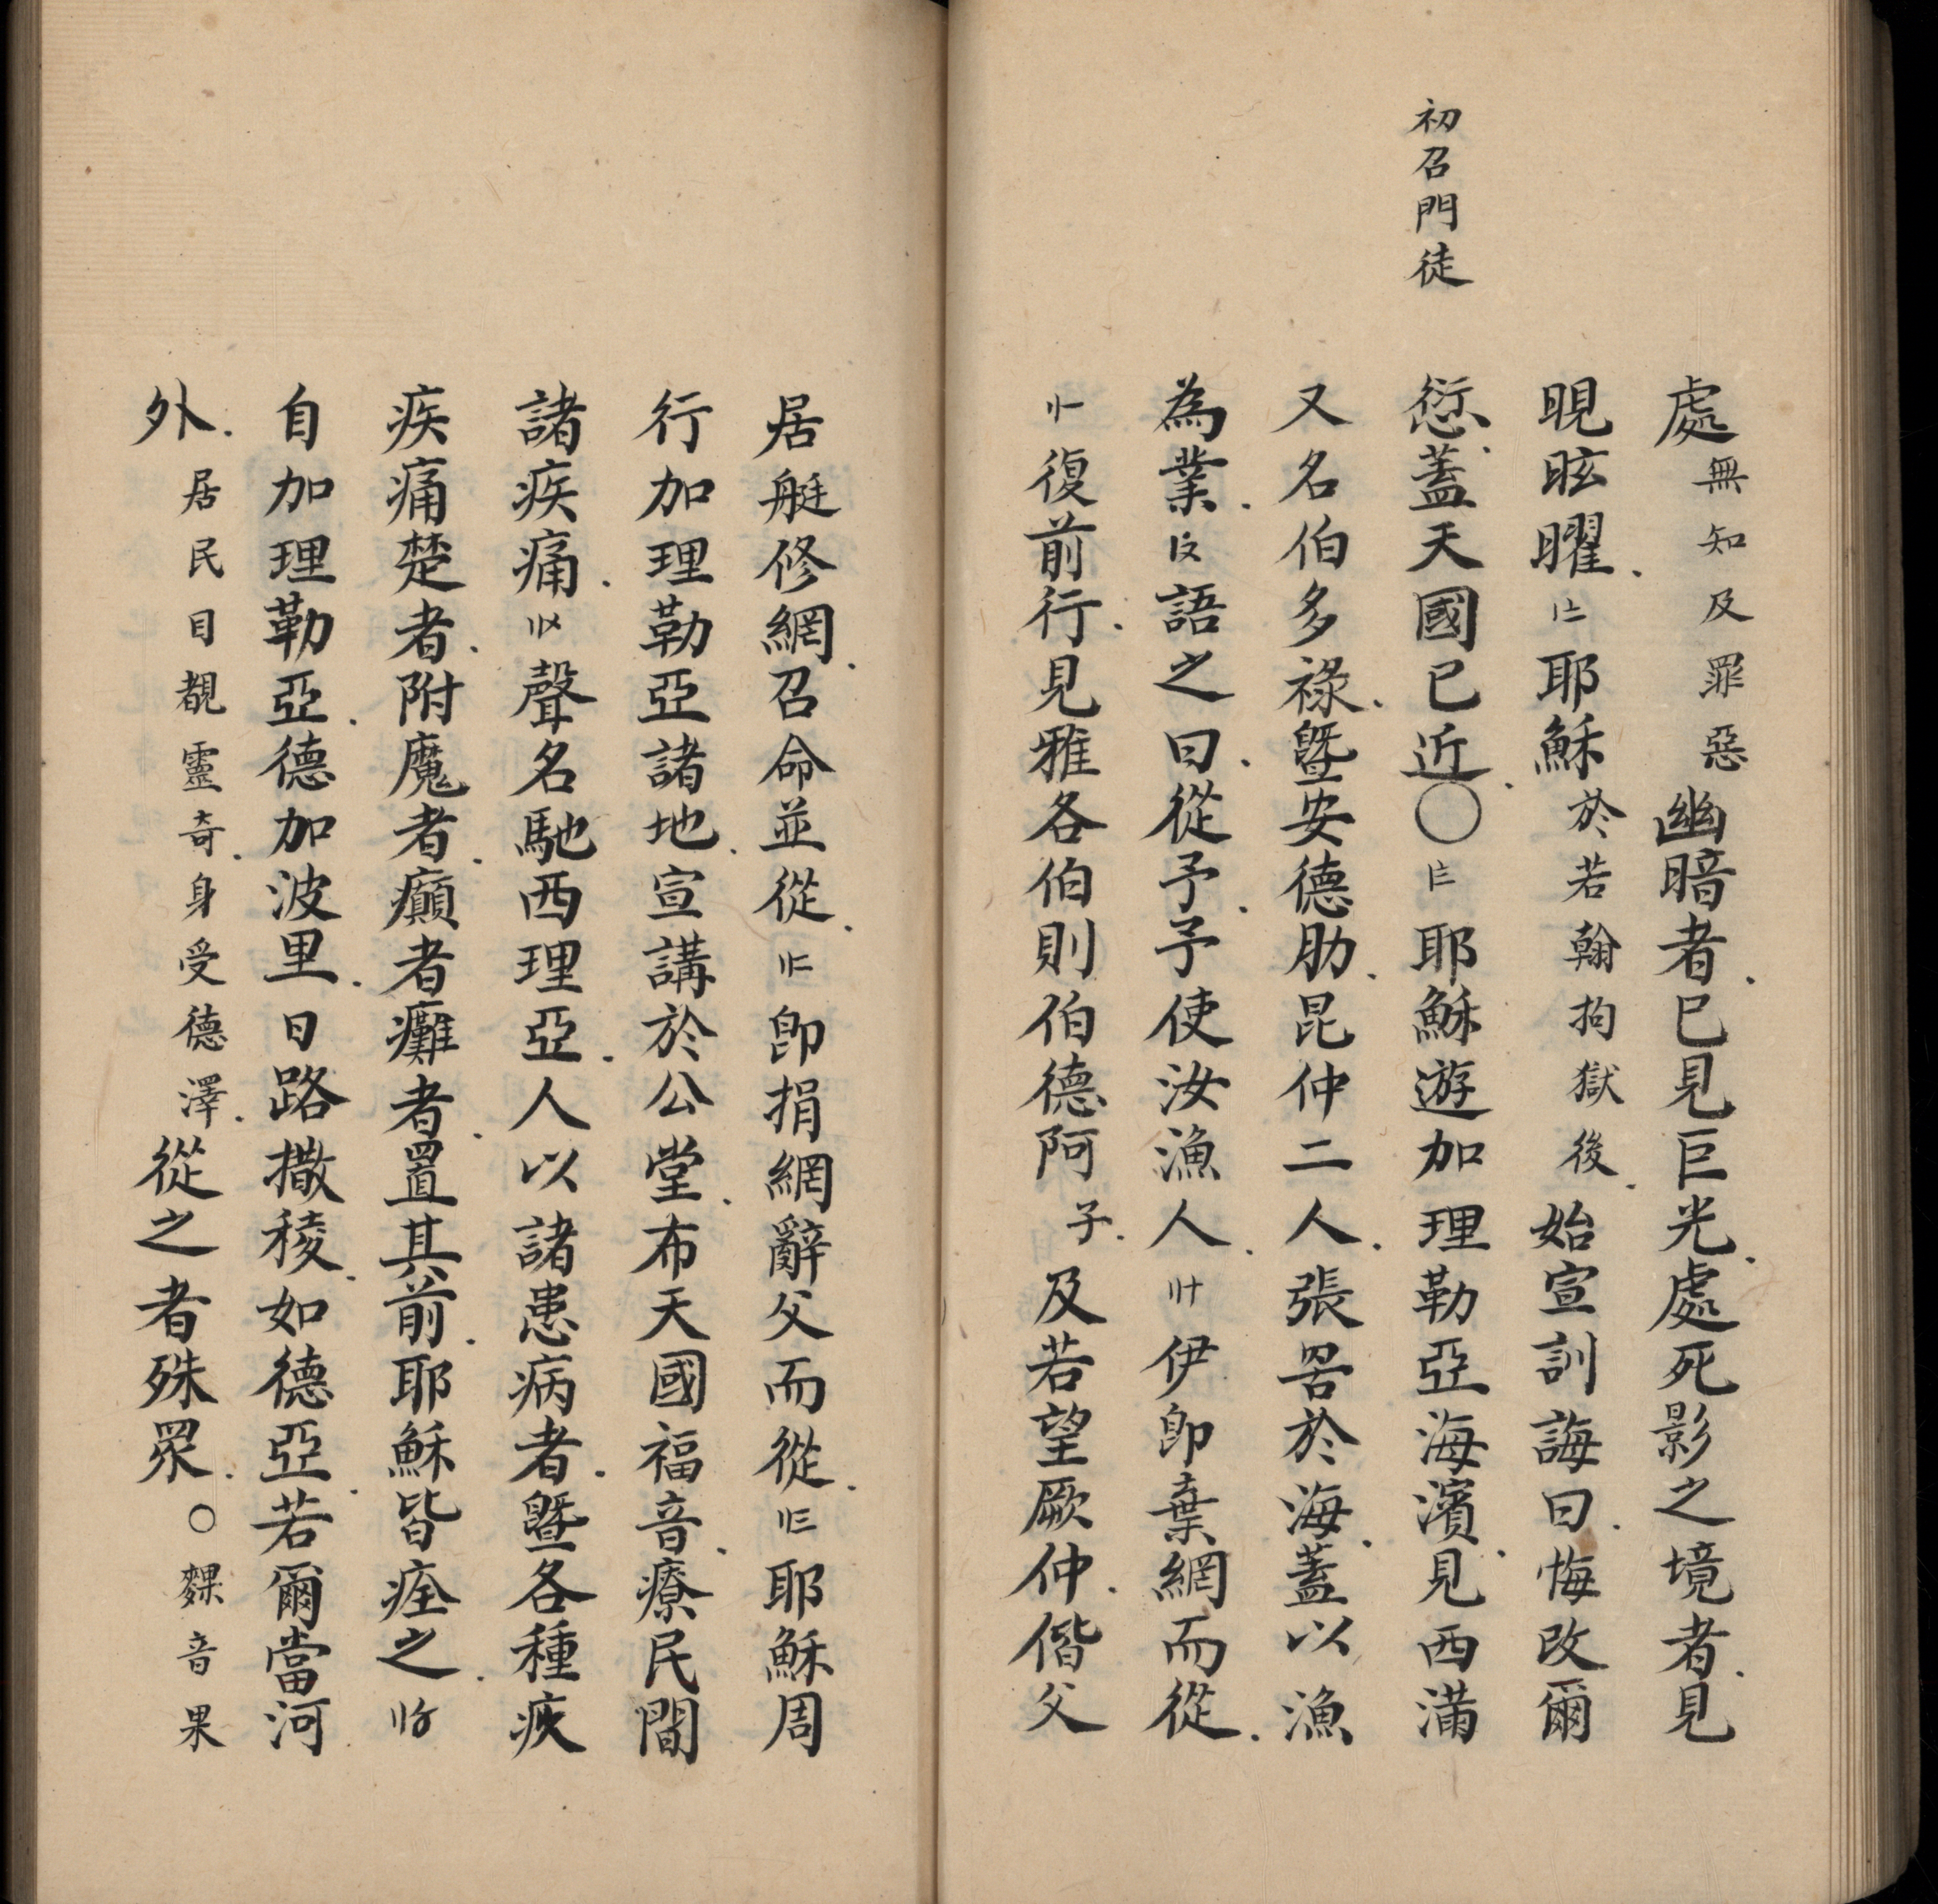 初召門徒
處無知及罪惡幽暗者.巳見巨光.處死影之境者.見
晛眩曜.耶穌於若翰拘獄後.始宣訓誨曰.悔改爾
愆.蓋天國已近.〇耶穌遊加理勒亞海濱.見西滿
又名伯多祿.暨安德肋.昆仲二人.張罟於海.蓋以漁
為業.語之曰.從予.予使汝漁人.伊即棄網而從.
復前行.見雅各伯則伯德阿子.及若望厥仲.偕父
居艇修網.召命並從.即捐網辭父而從.耶穌周
行加理勒亞諸地.宣講於公堂.布天國福音.療民間
諸疾痛.聲名馳西理亞.人以諸患病者.暨各種疾
疾痛楚者.附魔者.癲者癱者.置其前.耶穌皆痊之.
自加理勒亞.德加波里.日路撒稜.如德亞.若爾當河
外.居民目覩靈奇.身受德澤.從之者殊眾.〇粿音果